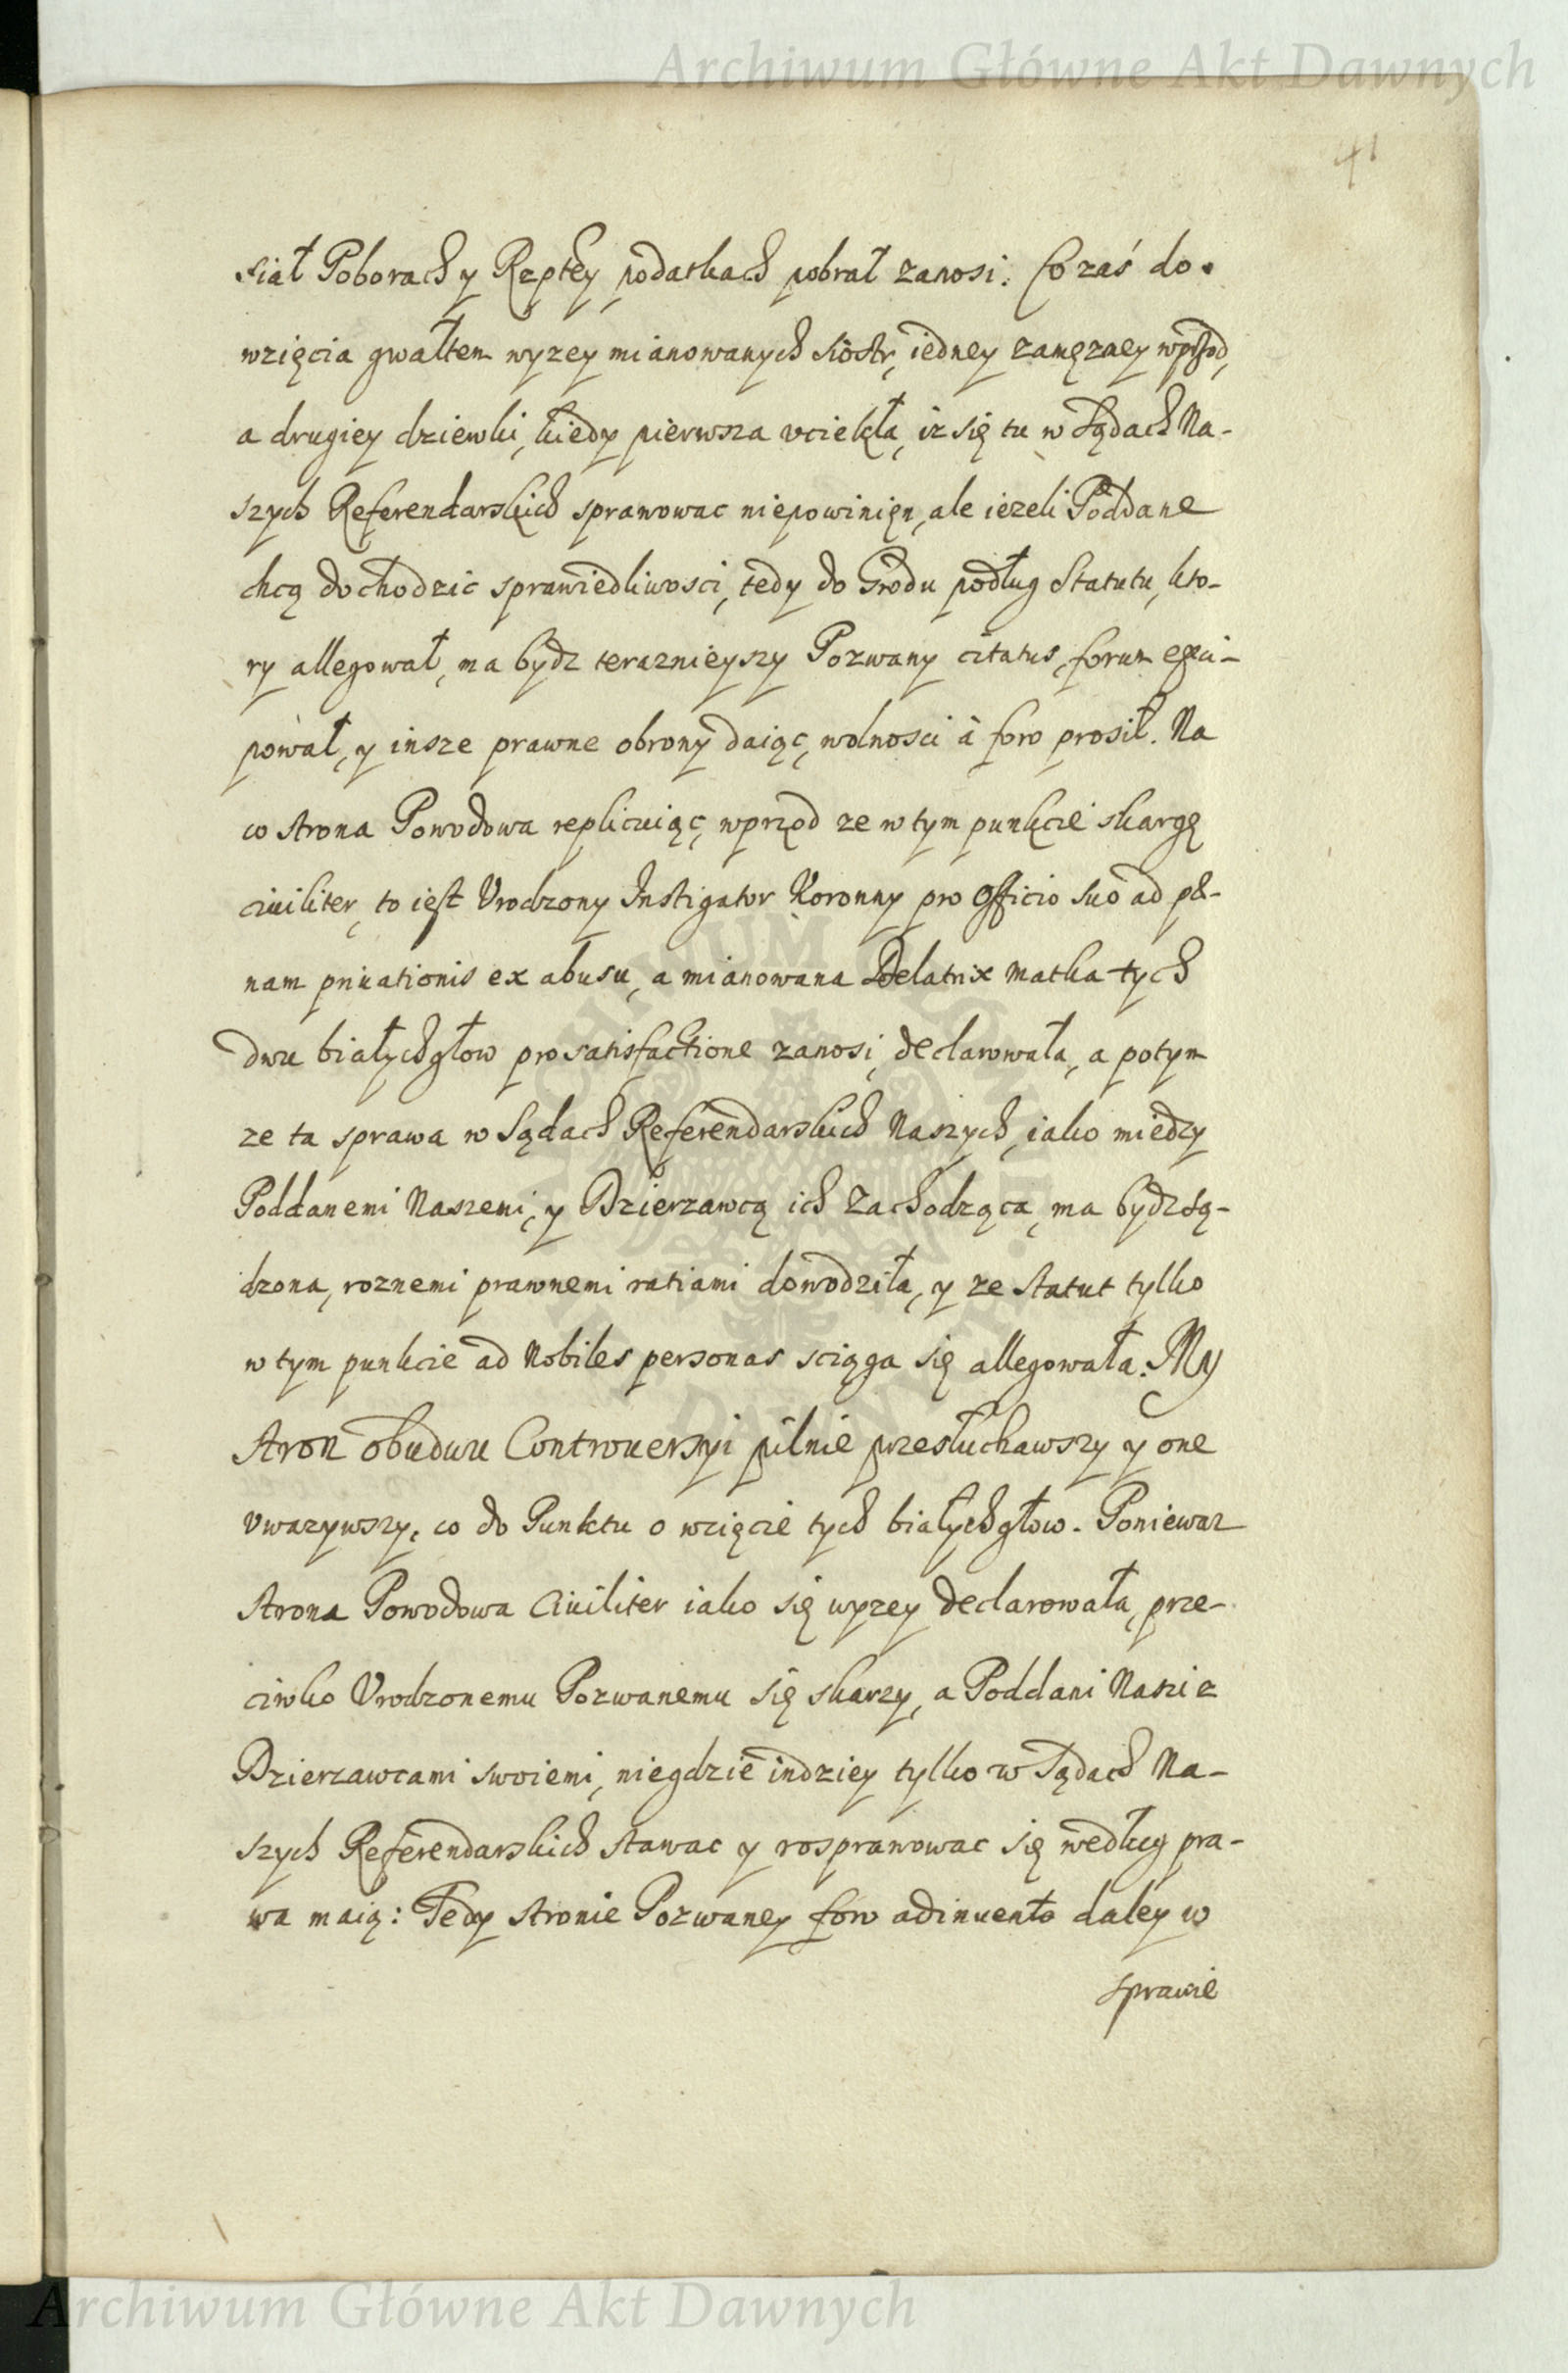 Archiwum Główne Akt Dawnych
41
siał Poborach y Rzptey podatkach pobrał zanosi. Co zaś do
wzięcia gwałtem wyzey mianowanych siostr, iedney zamęzney wprzod,
a drugiey dziewki, kiedy pierwsza vciekła, iz się tu w Sądach Na-
szych Referendarskich sprawowac niepowinien, ale iezeli Poddane
chcą dochodzic sprawiedliwosci, tedy do Grodu podług Statutu, kto-
ry allegował, ma bydz teraznieyszy Pozwany citatus, forum exci-
pował, y insze prawne obrony daiąc, wolnosci à foro prosił. Na
co strona Powodowa replicuiąc, wprzod ze w tym punkcie skargę
ciuiliter, to iest Vrodzony Instigator Koronny pro officio suo ad pæ-
nam priuationis ex abusu, a mianowana Delatrix matka tych
dwu białychgłow pro satisfactione zanosi, declarowała, a potym
ze ta sprawa w Sądach Referendarskich Naszych, iako miedzy
Poddanemi Naszemi, y Dzierzawcą ich zachodząca, ma bydz są-
dzona, roznemi prawnemi ratiami dowodziła, y ze Statut tylko
w tym punkcie ad Nobiles personas sciąga się allegowała. My
Stron obudwu Controuersyi pilnie przesłuchawszy y one
vwazywszy, co do Punktu o wzięcie tych białychgłow. Poniewaz
Strona Powodowa Ciuiliter iako się wyzey declarowała, prze-
ciwko Vrodzonemu Pozwanemu się skarzy, a Poddani Naszi z
Dzierzawcami swoiemi, niegdzie indziey tylko w Sądach Na-
szych Referendarskich stawac y rosprawowac się według pra-
wa maią: Tedy stronie Pozwaney foro adinuento daley w
sprawie
Archiwum Główne Akt Dawnych